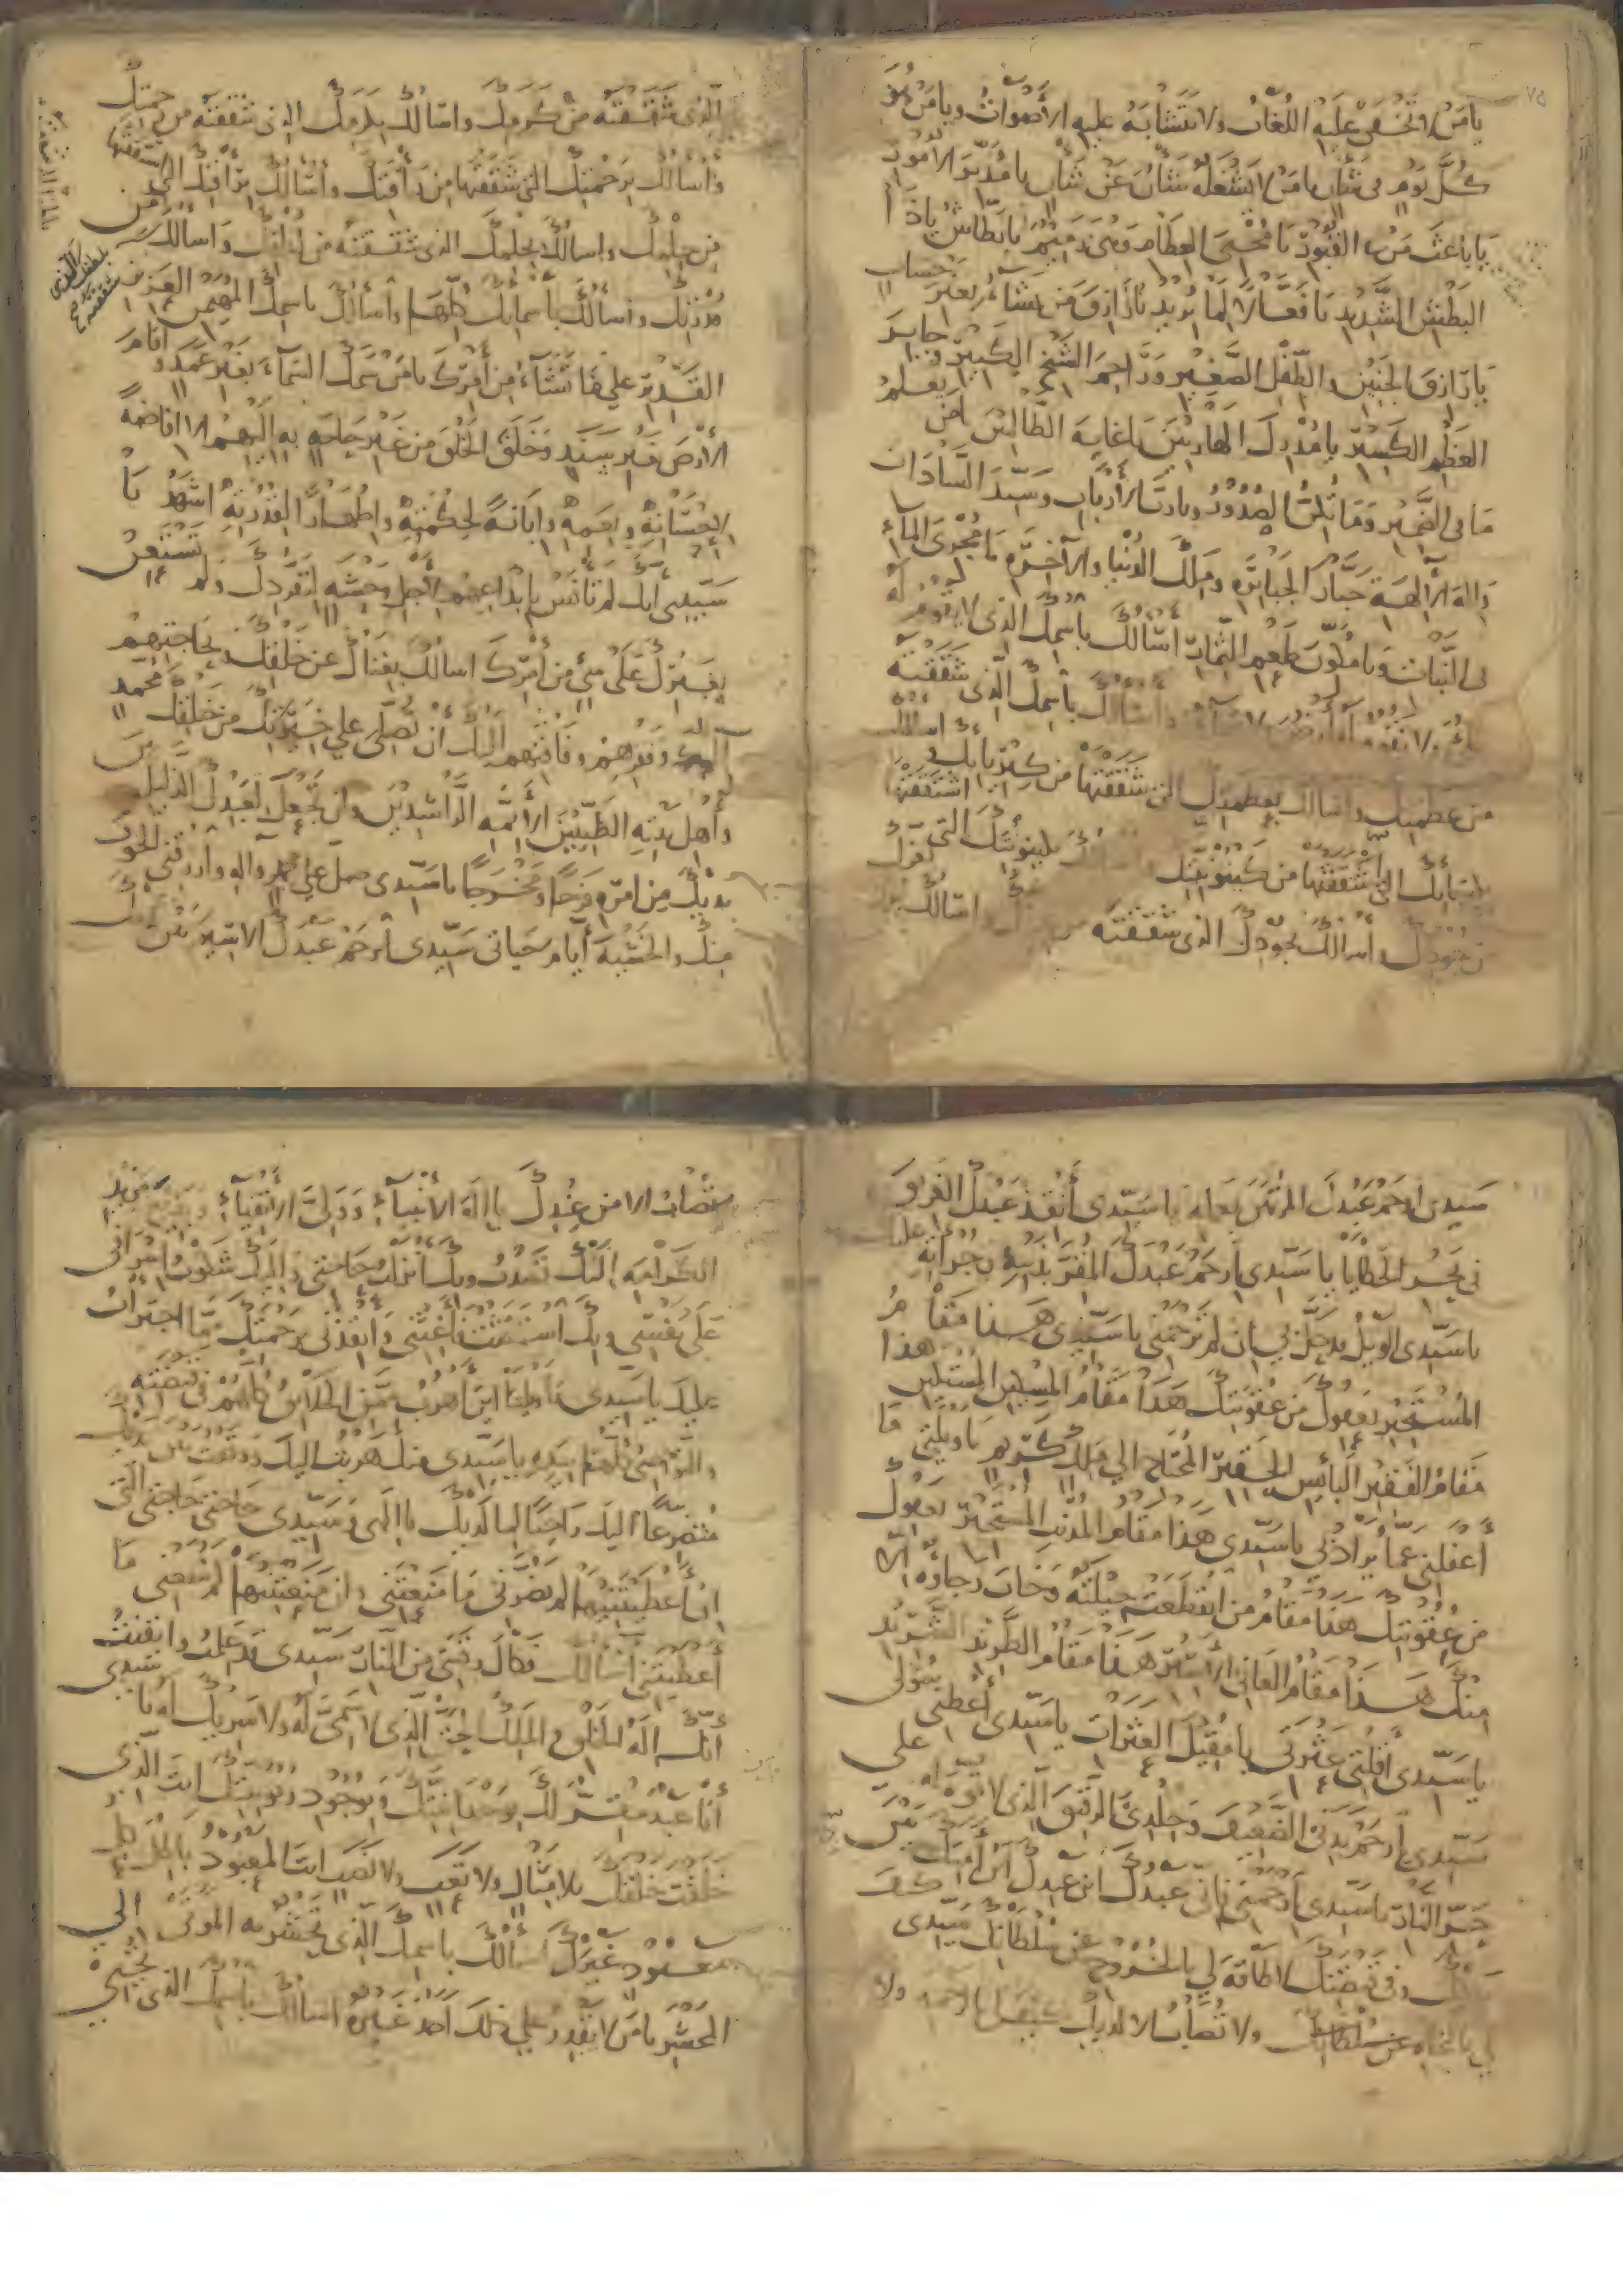 ٧٥
يا من لا تخفى عليه اللغات ولا تتشابه عليه الأصوات ويا من هو
كل يوم في شأن يا من لا يشغله شأن عن شأن يا مدبر الأمور
يا باعث من في القبور يا محيي العظام وهي رميم يا بطاش يا ذا
البطش الشديد يا فعالا لما يريد يا رازق من يشاء بغير حساب
يا رازق الجنين والطفل الصغير وراحم الشيخ الكبير وجابر
العظم الكسير يا مدرك الهاربين يا غاية الطالبين يا من يعلم
ما في الضمير وما تكن الصدور ويا رب الأرباب وسيد السادات
واله الآلهة جبار الجبابرة وملك الدنيا والآخرة يا مجري الماء
في النبات ويا مكون طعم الثمار اسألك باسمك الذي لا يقوم له
ولا تقوم له أرض ولا سماء واسألك باسمك الذي شققته
من عظمتك واسألك بعظمتك التي شققتها من كبريائك واسألك
بكبريائك التي شققتها من كينونيتك واسألك بكينونيتك التي اشتققتها
من جودك وأسألك بجودك الذي شققته من عزك واسألك بعزك
الذي شققته من كرمك واسألك بكرمك الذي شققته من رحمتك
وأسألك برحمتك التي شققتها من رأفتك وأسألك برأفتك التي شققتها
من حلمك واسألك بحلمك الذي شققته من لطفك واسألك
بلطفك الذي شققته من
قدرتك وأسألك بأسمائك كلها وأسألك باسمك المهيمن العزيز
القدير على ما تشاء من أمرك يا من سمك السماء بغير عمد وأقام
الأرض بغير سند وخلق الخلق من غير حاجة به إليهم إلا افاضة
لإحسانه ونعمه وابانة لحكمته واظهارا لقدرته اشهد يا
سيدي أنك لم تأنس بابتداعهم لأجل وحشة لتفردك ولم تستعن
بغيرك على شيء من أمرك اسألك بغناك عن خلقك وبحاجتهم
إليك وفقرهم وفاقتهم إليك أن تصلي على خيرتك من خلقك محمد
وأهل بيته الطيبين الأئمة الراشدين وان تجعل لعبدك الذليل بين
يديك من امره فرجا ومخرجا يا سيدي صل على محمد واله وارزقني الخوف
منك والخشية أيام حياتي سيدي ارحم عبدك الاسير بين يديك
سيدي ارحم عبدك المرتهن بعمله يا سيدي أنقذ عبدك الغريق
في بحر الخطايا يا سيدي ارحم عبدك المقر بذنبه وجرأته عليك
يا سيدي الويل قد حل بي ان لم ترحمني يا سيدي هذا مقام
المستجير بعفوك من عقوبتك هذا مقام المسكين المستكين هذا
مقام الفقير البائس الحقير المحتاج الى ملك كريم يا ويلتي ما
أغفلني عما يراد بي يا سيدي هذا مقام المذنب المستجير بعفوك
من عقوبتك هذا مقام من انقطعت حيلته وخاب رجاؤه الا
منك هذا مقام العاني الأسير هذا مقام الطريد الشريد
يا سيدي أقلني عثرتي يا مقيل العثرات يا سيدي أعطني سؤلي
سيدي ارحم بدني الضعيف وجلدي الرقيق الذي لا قوة له على
حر النار يا سيدي ارحمني فاني عبدك ابن عبدك ابن أمتك بين
يديك وفي قبضتك لا طاقة لي بالخروج عن سلطانك سيدي وكيف
لي بالنجاة ولا تصاب الا لديك وكيف لي بالرحمة ولا
تصاب الا من عندك يا اله الأنبياء وولي الأتقياء وبديع مزيد
الكرامة إليك قصدت وبك أنزلت حاجتي وإليك شكوت إسرافي
على نفسي وبك استغثت فأغثني وانقذني برحمتك مما اجترأت
عليك يا سيدي يا ويلتا أين اهرب ممن الخلائق كلهم في قبضته
والنواصي كلها بيده يا سيدي منك هربت إليك ووقفت بين يديك
متضرعا إليك راجيا لما لديك يا إلهي وسيدي حاجتي حاجتي التي
إن أعطيتنيها لم يضرني ما منعتني وإن منعتنيها لم ينفعني ما
أعطيتني أسألك فكاك رقبتي من النار سيدي قد علمت وايقنت
أنك اله الخلق والملك الحق الذي لا سمي له ولا شريك له يا سيدي
أنا عبدك مقر لك بوحدانيتك وبوجود ربوبيتك أنت الذي
خلقت خلقك بلا مثال ولا تعب ولا نصب أنت المعبود باطل كل
معبود غيرك أسألك باسمك الذي تحشر به الموتى إلى
المحشر يا من لا يقدر على ذلك أحد غيره اسألك باسمك الذي تحيي